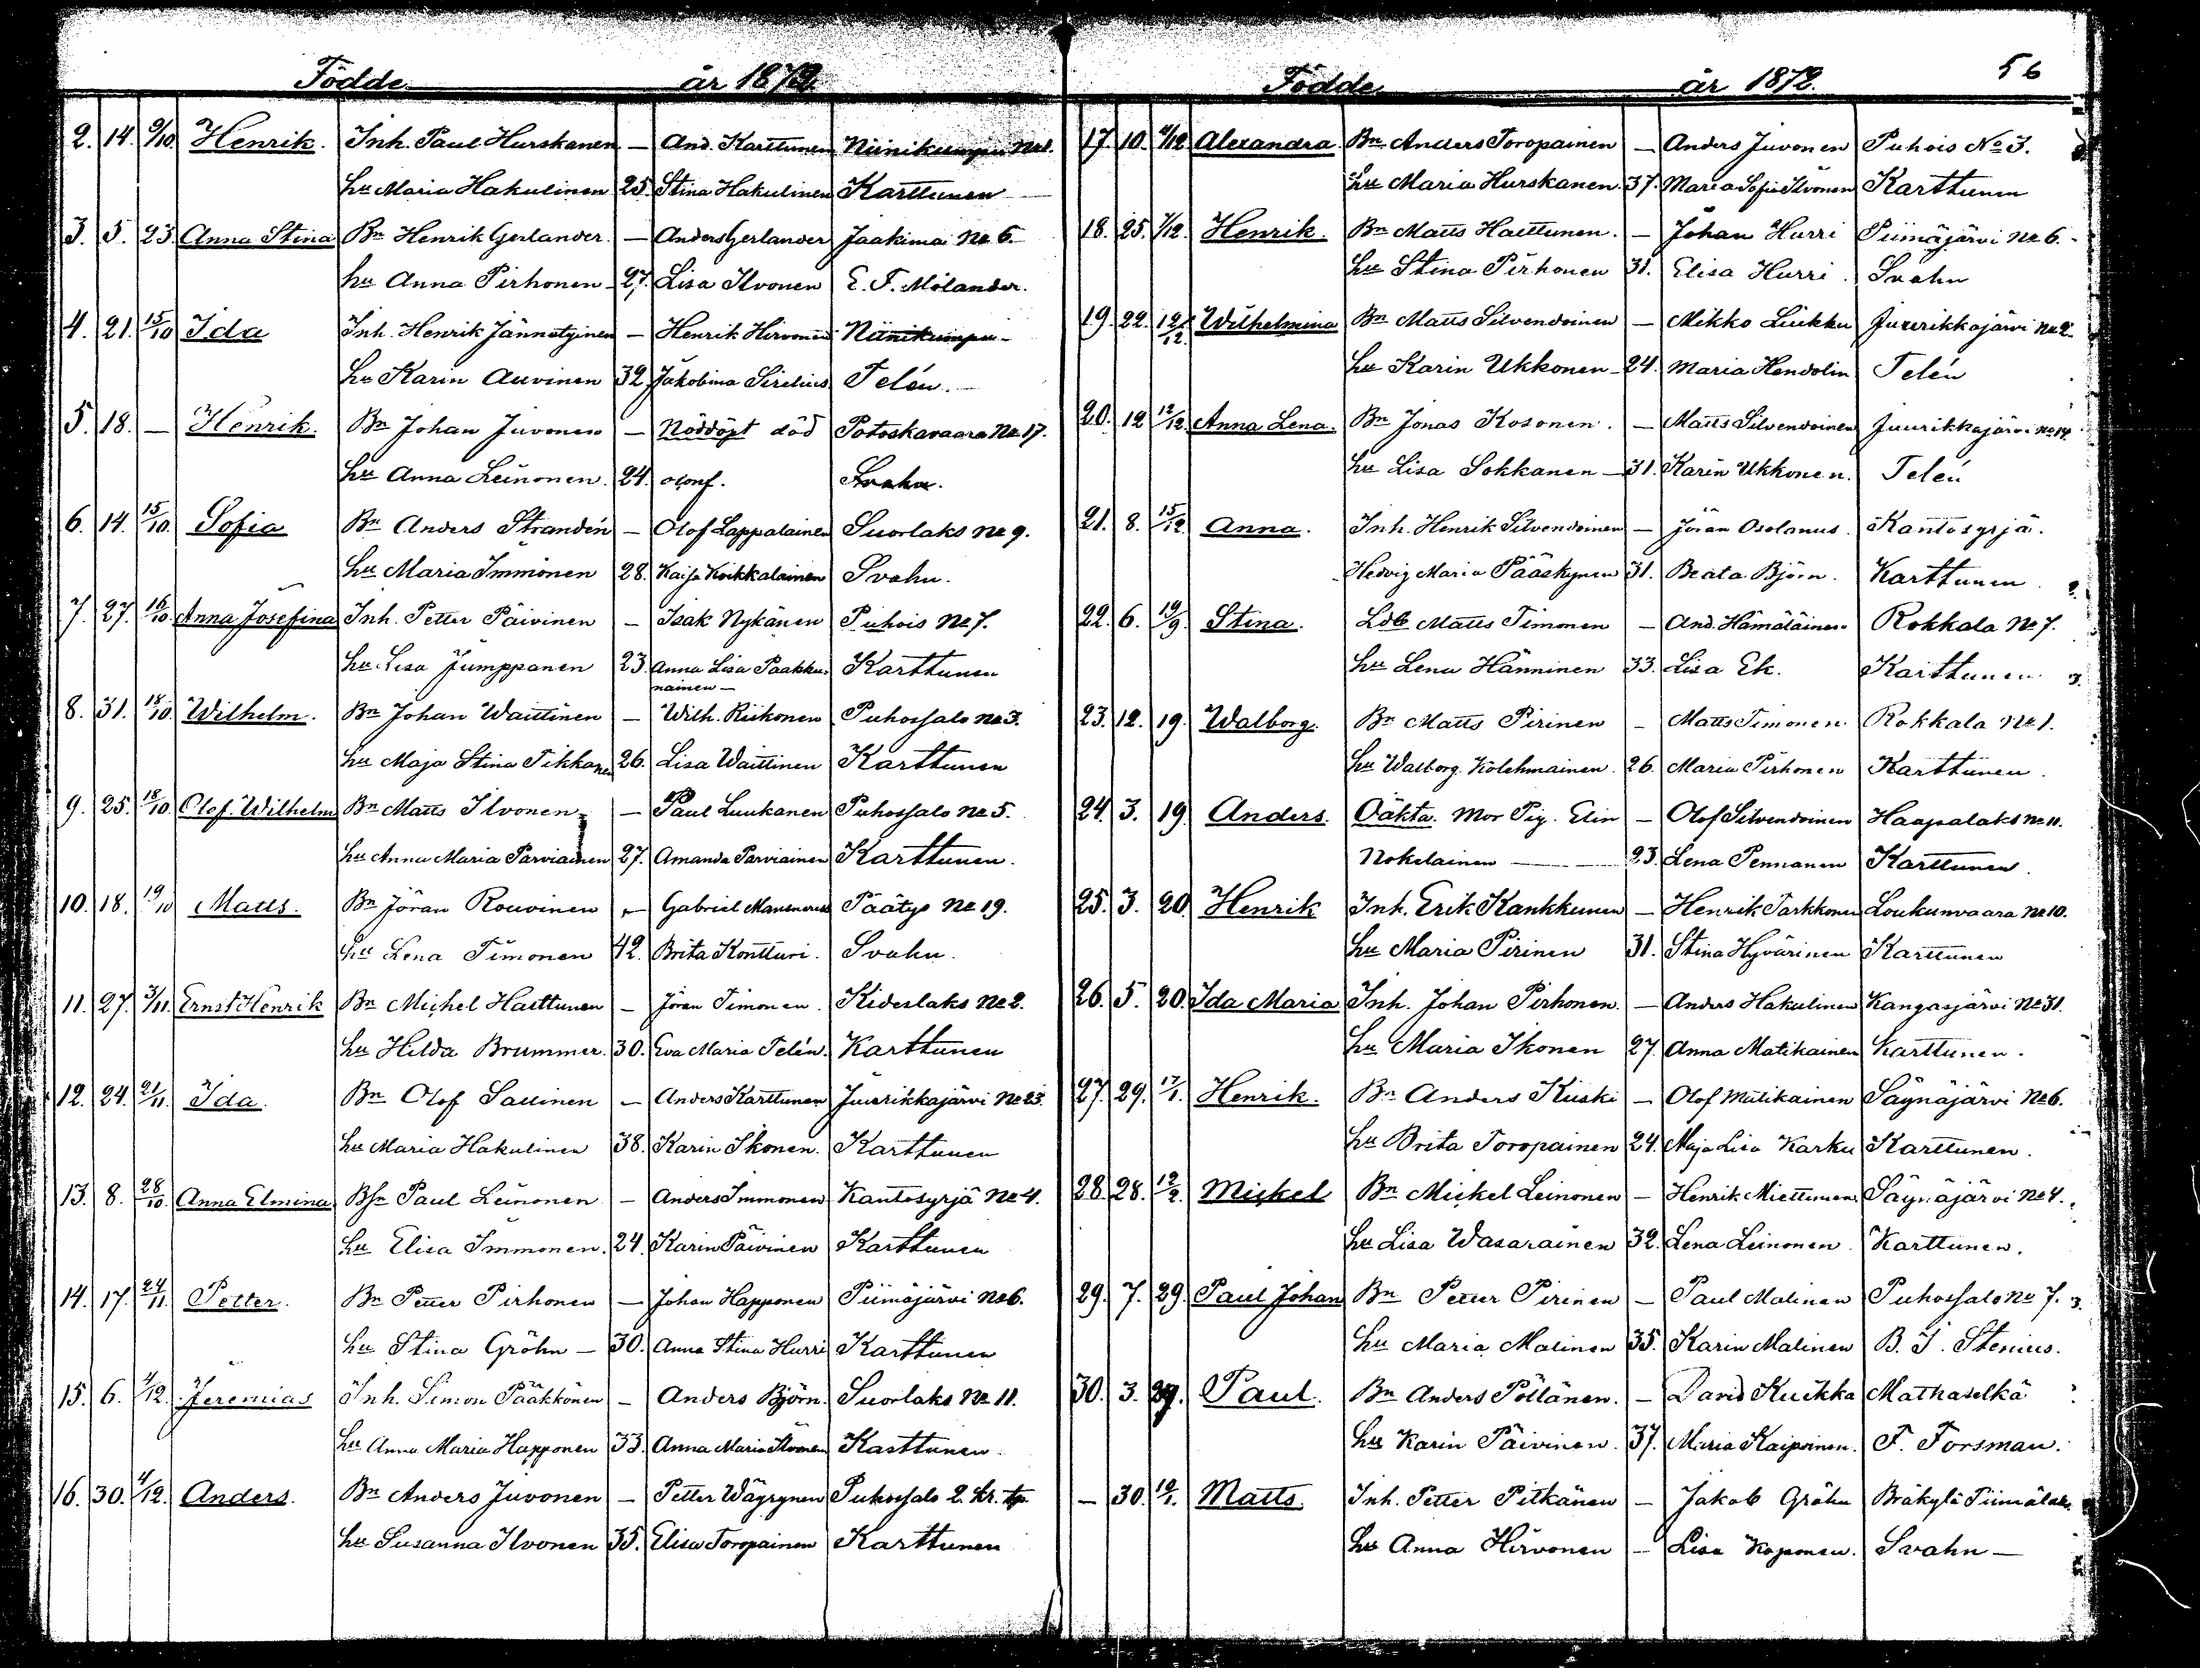 Födde år 1872.
2. 14. 9/10 Henrik. Inh. Paul Hurskanen – And. Karttunen Niinikumpu No 1.
hu Maria Hakulinen 25. Stina Hakulinen Karttunen
3. 5. 23. Anna Stina Bn Henrik Gerlander. – Anders Gerlander Jaakima No 6.
hu Anna Pirhonen 27. Lisa Ilvonen E. F. Molander.
4. 21. 15/10 Ida Inh. Henrik Jännetyinen – Henrik Hirvonen Niinikumpu
hu Karin Auvinen 32. Jakobina Sirelius Telén.
5. 18. – Henrik. Bn Johan Juvonen – Nöddöpt död Potoskavaara No 17.
hu Anna Leinonen. 24. oconf. Svahn.
6. 14. 15/10. Sofia Bn Anders Strandén – Olof Lappalainen Suorlaks No 9.
hu Maria Immonen 28. Kaisa Koikkalainen Svahn.
7. 27. 16/10. Anna Josefina Inh. Petter Päivinen – Isak Nykänen Puhois No 7.
hu Lisa Jumppanen 23. Anna Lisa Paakku- Karttunen
nainen –
8. 31. 18/10. Wilhelm. Bn Johan Waittinen – Wilh. Riikonen Puhossalo No 3.
hu Maja Stina Tikkanen 26. Lisa Waittinen Karttunen
9. 25. 18/10. Olof Wilhelm Bn Matts Ilvonen – Paul Luukanen Puhossalo No 5.
hu Anna Maria Parviainen 27. Amanda Parviainen Karttunen.
10. 18. 19/10 Matts. Bn Jöran Rouvinen – Gabriel Mansnerus Päätye No 19.
hu Lena Timonen 42. Brita Kontturi. Svahn.
11. 27. 3/11. Ernst Henrik Bn Michel Haittunen – Jöran Timonen. Kideslaks No 2.
hu Hilda Brummer. 30. Eva Maria Telén. Karttunen
12. 24. 21/11. Ida. Bn Olof Sallinen – Anders Karttunen Juurikkajärvi No 23.
hu Maria Hakulinen 38. Karin Ikonen. Karttunen
13. 8. 28/10. Anna Elmina Bsn Paul Leinonen – Anders Immonen Kantosyrjä No 4.
hu Elisa Immonen. 24. Karin Päivinen Karttunen
14. 17. 24/11. Petter. Bn Petter Pirhonen – Johan Happonen Piimäjärvi No 6.
hu Stina Gröhn – 30. Anna Stina Hurri Karttunen
15. 6. 1/12. Jeremias Inh. Simon Pääkkönen – Anders Björn. Suorlaks No 11.
hu Anna Maria Happonen 33. Anna Maria Ilvonen Karttunen.
16. 30. 1/12. Anders. Bn Anders Juvonen – Petter Wäyrynen Puhossalo 2. Kr. tp.
hu Susanna Ilvonen 35. Elisa Toropainen Karttunen
Födde år 1872. 56
17. 10. /12 Alexandra. Bn Anders Toropainen – Anders Juvonen Puhois No 3.
hu Maria Hurskanen. 37. Maria Sofia Ilvonen Karttunen
18. 25. 7/12. Henrik. Bn Matts Haittunen. – Johan Hurri Piimäjärvi No 6.
hu Stina Pirhonen 31. Elisa Hurri. Svahn
19. 22. 12/12. Wilhelmina Bn Matts Silvendoinen – Mikko Liukku Juurikkajärvi No 2.
hu Karin Ukkonen 24. Maria Hendolin Telén
20. 12. 12/12. Anna Lena. Bn Jonas Kosonen. – Matts Silvendoinen Juurikkajärvi No 14.
hu Lisa Sokkanen – 31. Karin Ukkonen. Telén
21. 8. 15/12. Anna. Inh. Henrik Silvendoinen – Jöran Osolanus. Kantosyrjä.
Hedvig Maria Pääskynen 31. Beata Björn. Karttunen.
22. 6. 19/9. Stina. Ldb Matts Timonen – And. Hämäläinen. Rokkala No 7.
hu Lena Hänninen 33. Lisa Ek. Karttunen.
23. 12. 19. Walborg. Bn Matts Pirinen – Matts Timonen. Rokkala No 1.
hu Walborg Kolehmainen. 26. Maria Pirhonen Karttunen.
24. 3. 19. Anders. Oäkta. Mor Pig. Elin – Olof Silvendoinen Haapalaks No 11.
Nokelainen – 23. Lena Pennanen Karttunen.
25. 3. 20. Henrik Inh. Erik Kankkunen – Henrik Tarkkonen Loukunvaara No 10.
hu Maria Pirinen 31. Stina Hyvärinen Karttunen
26. 5. 20. Ida Maria Inh. Johan Pirhonen. – Anders Hakulinen Kangasjärvi No 31.
hu Maria Ikonen 27. Anna Matikainen Karttunen.
27. 29. 17/1. Henrik. Bn Anders Kiiski – Olof Matikainen Säynäjärvi No 6.
hu Brita Toropainen 24. Maja Lisa Karku Karttunen.
28. 28. 12/2. Mickel Bn Mickel Leinonen – Henrik Miettunen Säynäjärvi No 4.
hu Lisa Wasarainen 32. Lena Leinonen. Karttunen.
29. 7. 29. Paul Johan Bn Petter Pirinen – Paul Malinen Puhossalo No 7.
hu Maria Malinen 35. Karin Malinen B. J. Stenius.
30. 3. 29. Paul. Bn Anders Pöllänen. – David Kuikka Mathaselkä
hu Karin Päivinen. 37. Maria Kaipainen. F. Forsman.
– 30. 12/1. Matts. Inh. Petter Pitkänen – Jakob Gröhn Bräkylä Piimälaks
hu Anna Hirvonen – Lisa Koponen. Svahn –